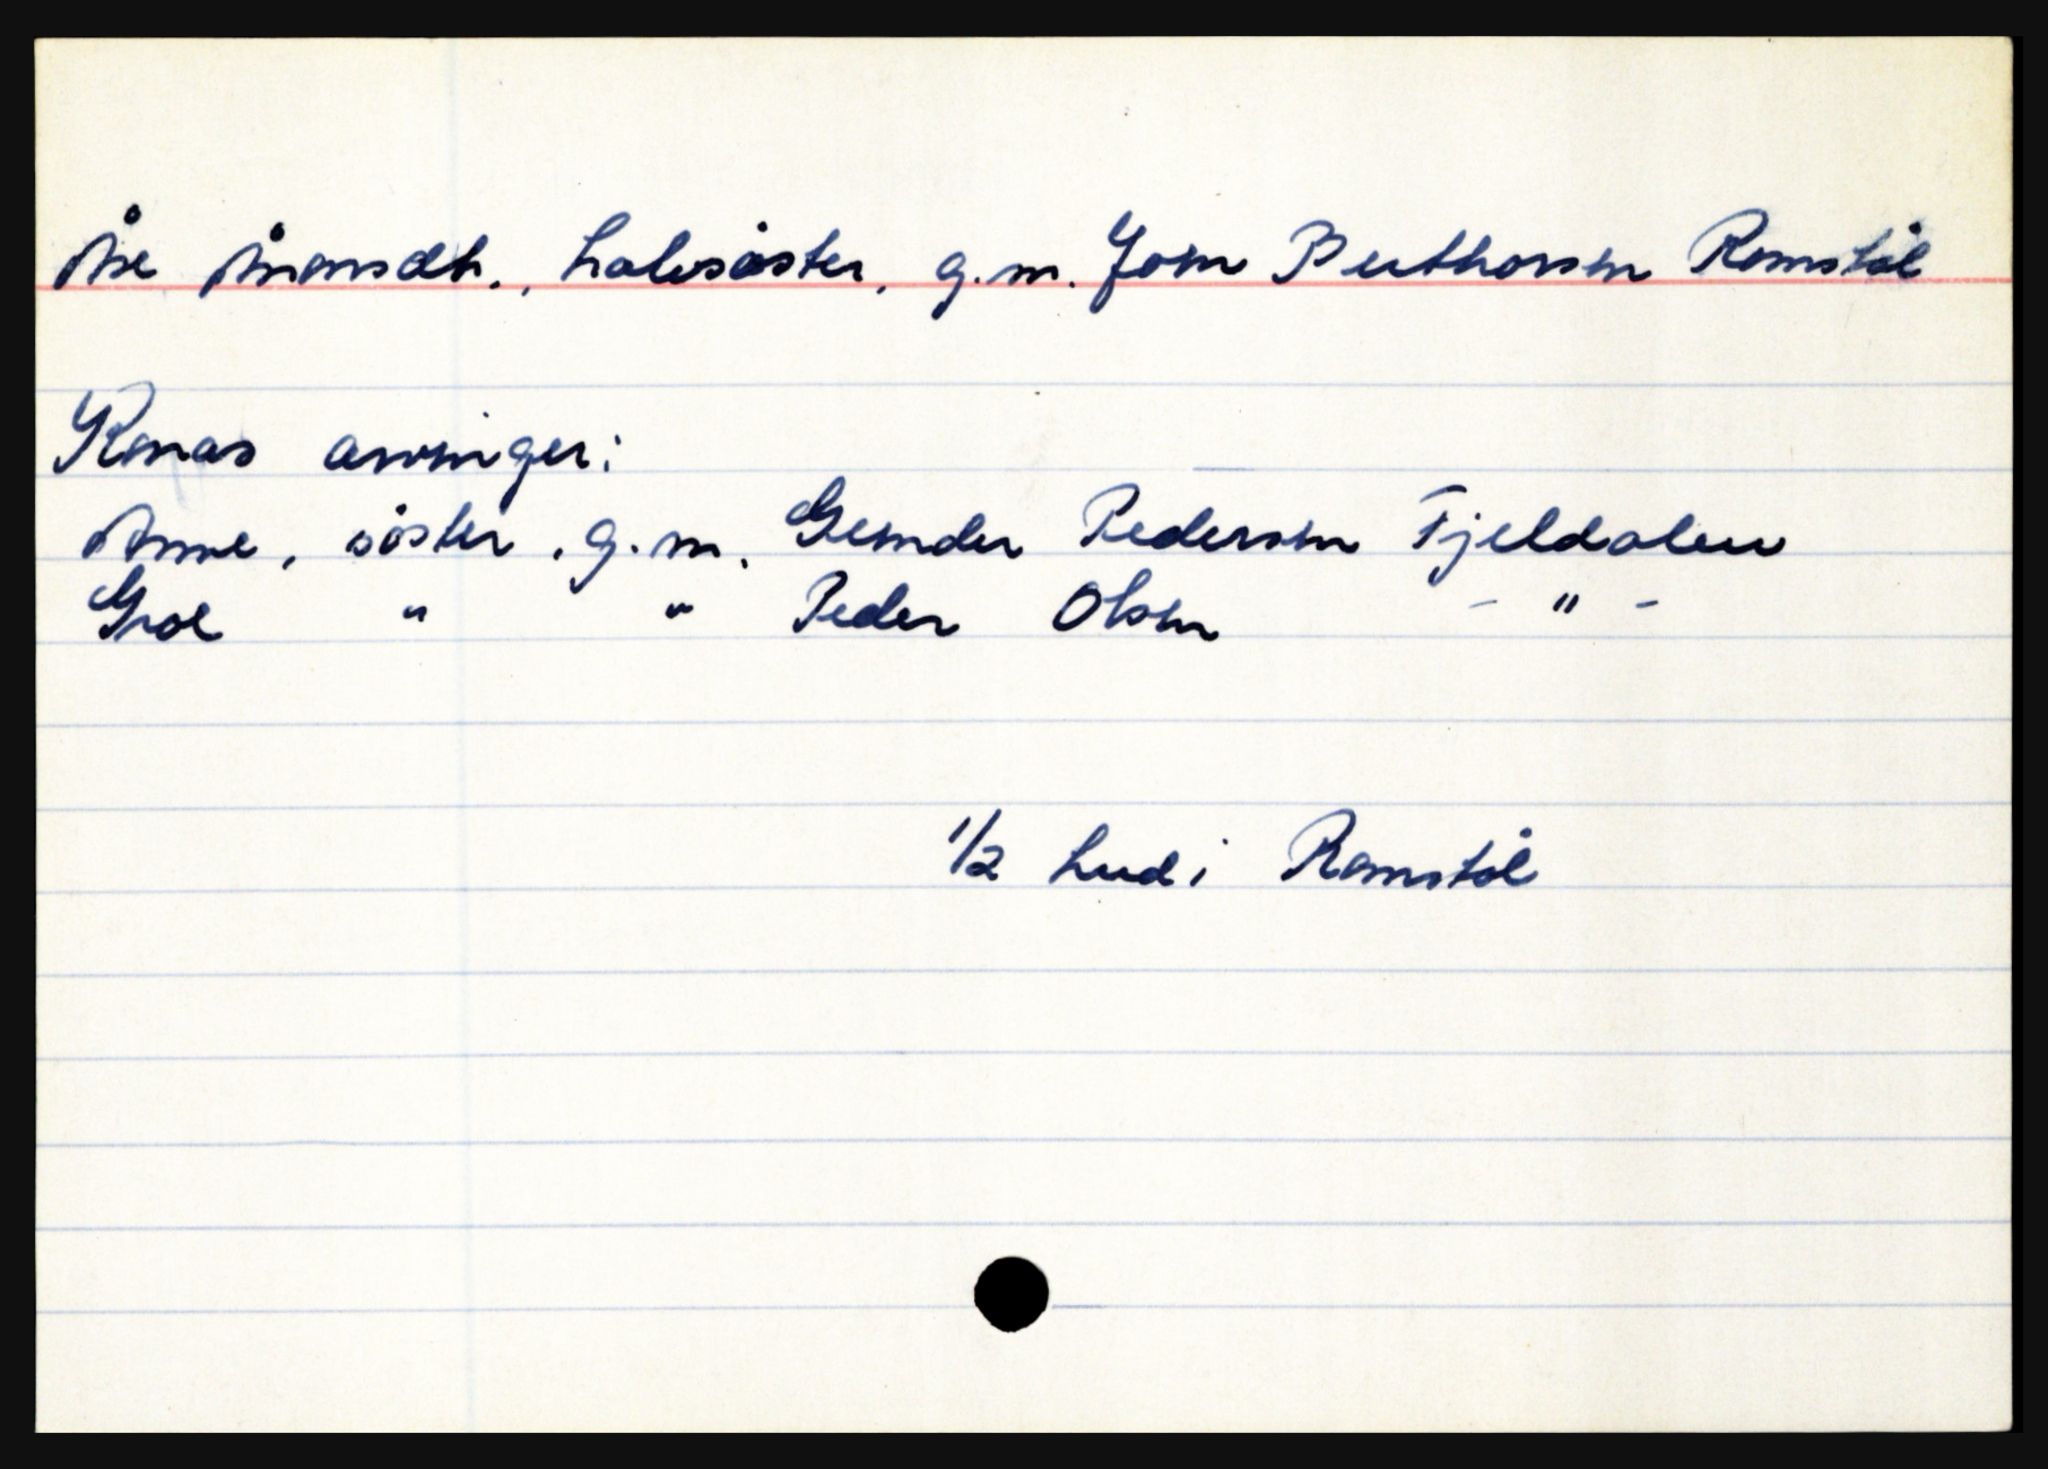 Åse Åmonsdtr., halvsöster, g.m. Jon Berthorsen Ramstöl
Konas arvinger:
Anne, söster, g.m. Gunder Pedersen Fjeldalen
Groe " " Peder Olsen - " -
1/2 hud i Ramstöl